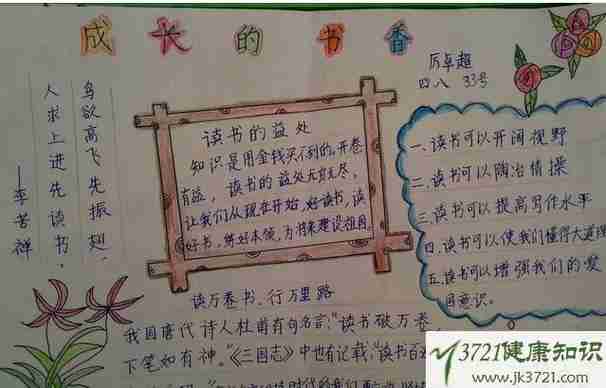 成长的书香
厉卓超
四八 33号
鸟欲高飞先振翅，
人求上进先读书。
——李苦禅
读书的益处
知识是用金钱买不到的。开卷
有益，读书的益处无穷无尽，
让我们从现在开始，好读书，读
好书，练好本领，为将来建设祖国。
一.读书可以开阔视野
二.读书可以陶冶情操
三.读书可以提高写作水平
四.读书可以使我们懂得大道理
五.读书可以增强我们的爱
国意识。
读万卷书、行万里路
我国唐代诗人杜甫有句名言:"读书破万卷，
下笔如有神。"《三国志》中也有记载:"读书百
时代的我们
3721健康知识
www.jk3721.com